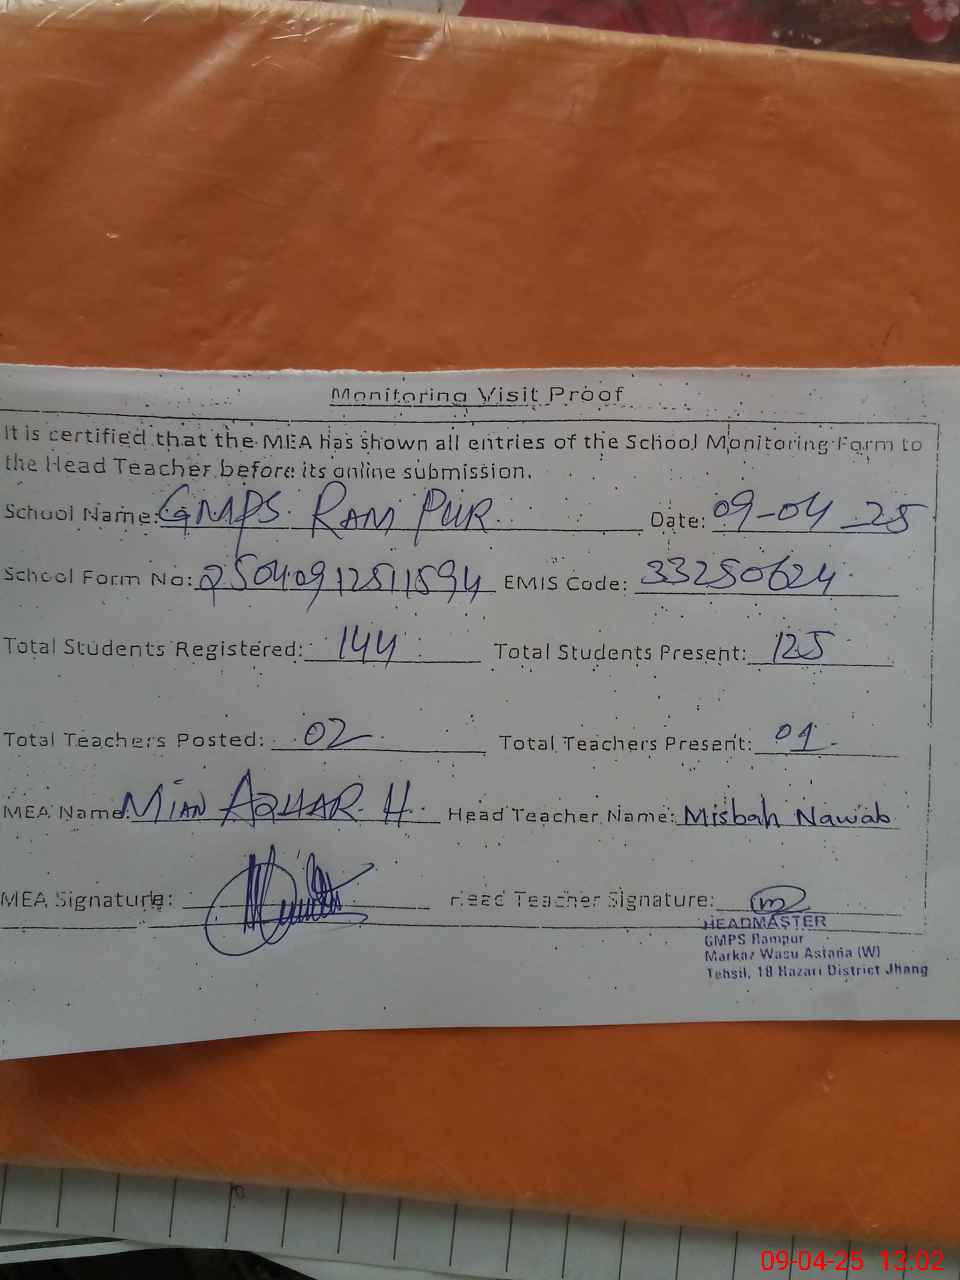 Monitoring Visit Proof
It is certified that the MEA has shown all entries of the School Monitoring Form to
the Head Teacher before its online submission.
School Name: GMPS RAM PUR Date: 09-04-25
School Form No: 2504091251594 EMIS Code: 33250624
Total Students Registered: 144 Total Students Present: 125
Total Teachers Posted: 02 Total Teachers Present: 01
MEA Name: MIAN AZHAR H. Head Teacher Name: Misbah Nawab
MEA Signature: Head Teacher Signature:
HEADMASTER
GMPS Rampur
Markaz Wasu Astana (W)
Tehsil, 18 Hazari District Jhang
09-04-25 13:02